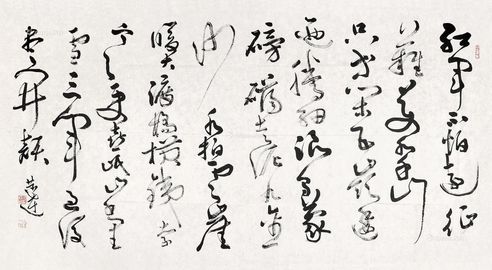 紅軍不怕遠征
難萬水千山
只等閒五嶺逶
迤騰細浪烏蒙
磅礴走泥丸金
沙
水拍雲崖
暖大渡橋橫鐵索
寒更喜岷山千里
雪三軍過後
盡開顏